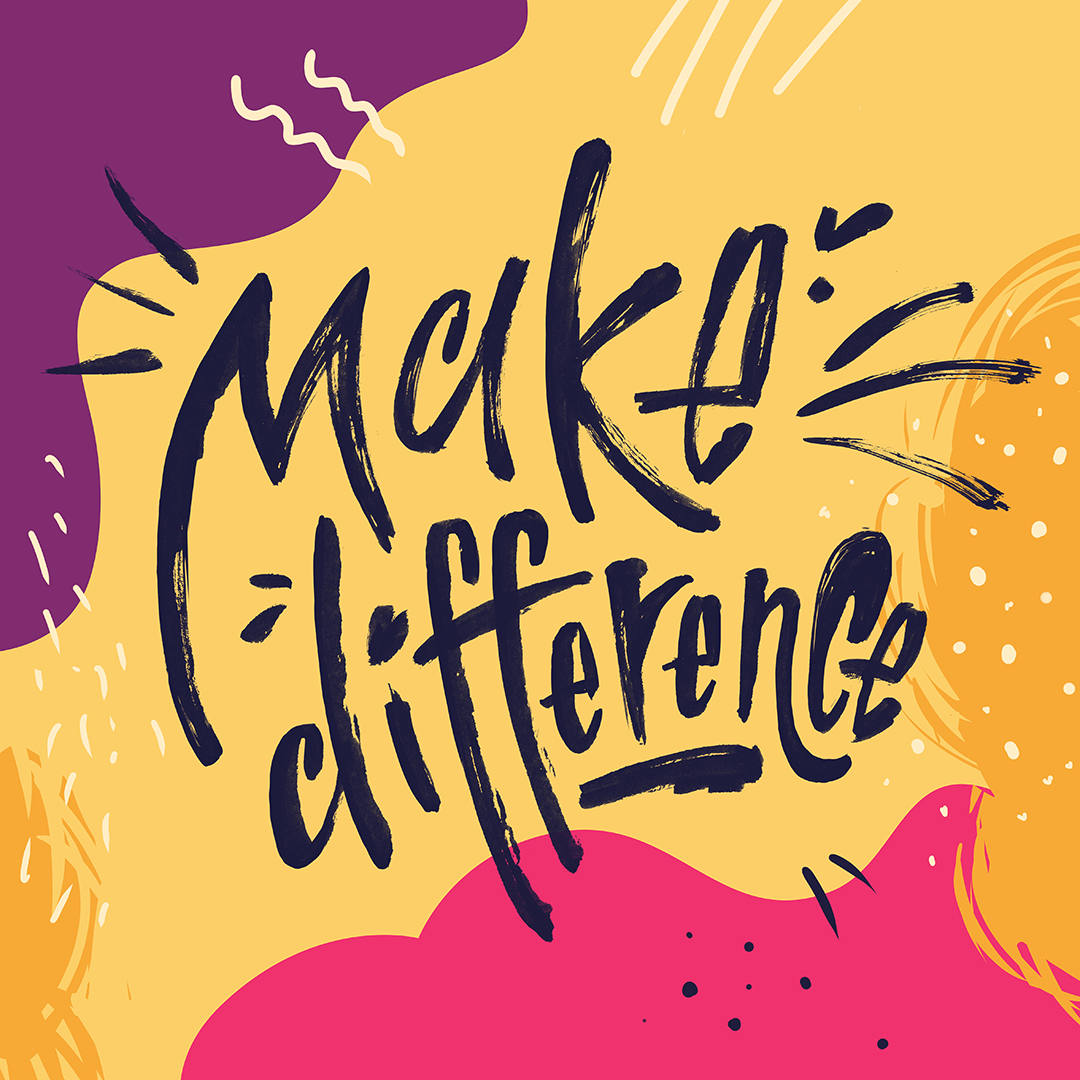 Make
difference